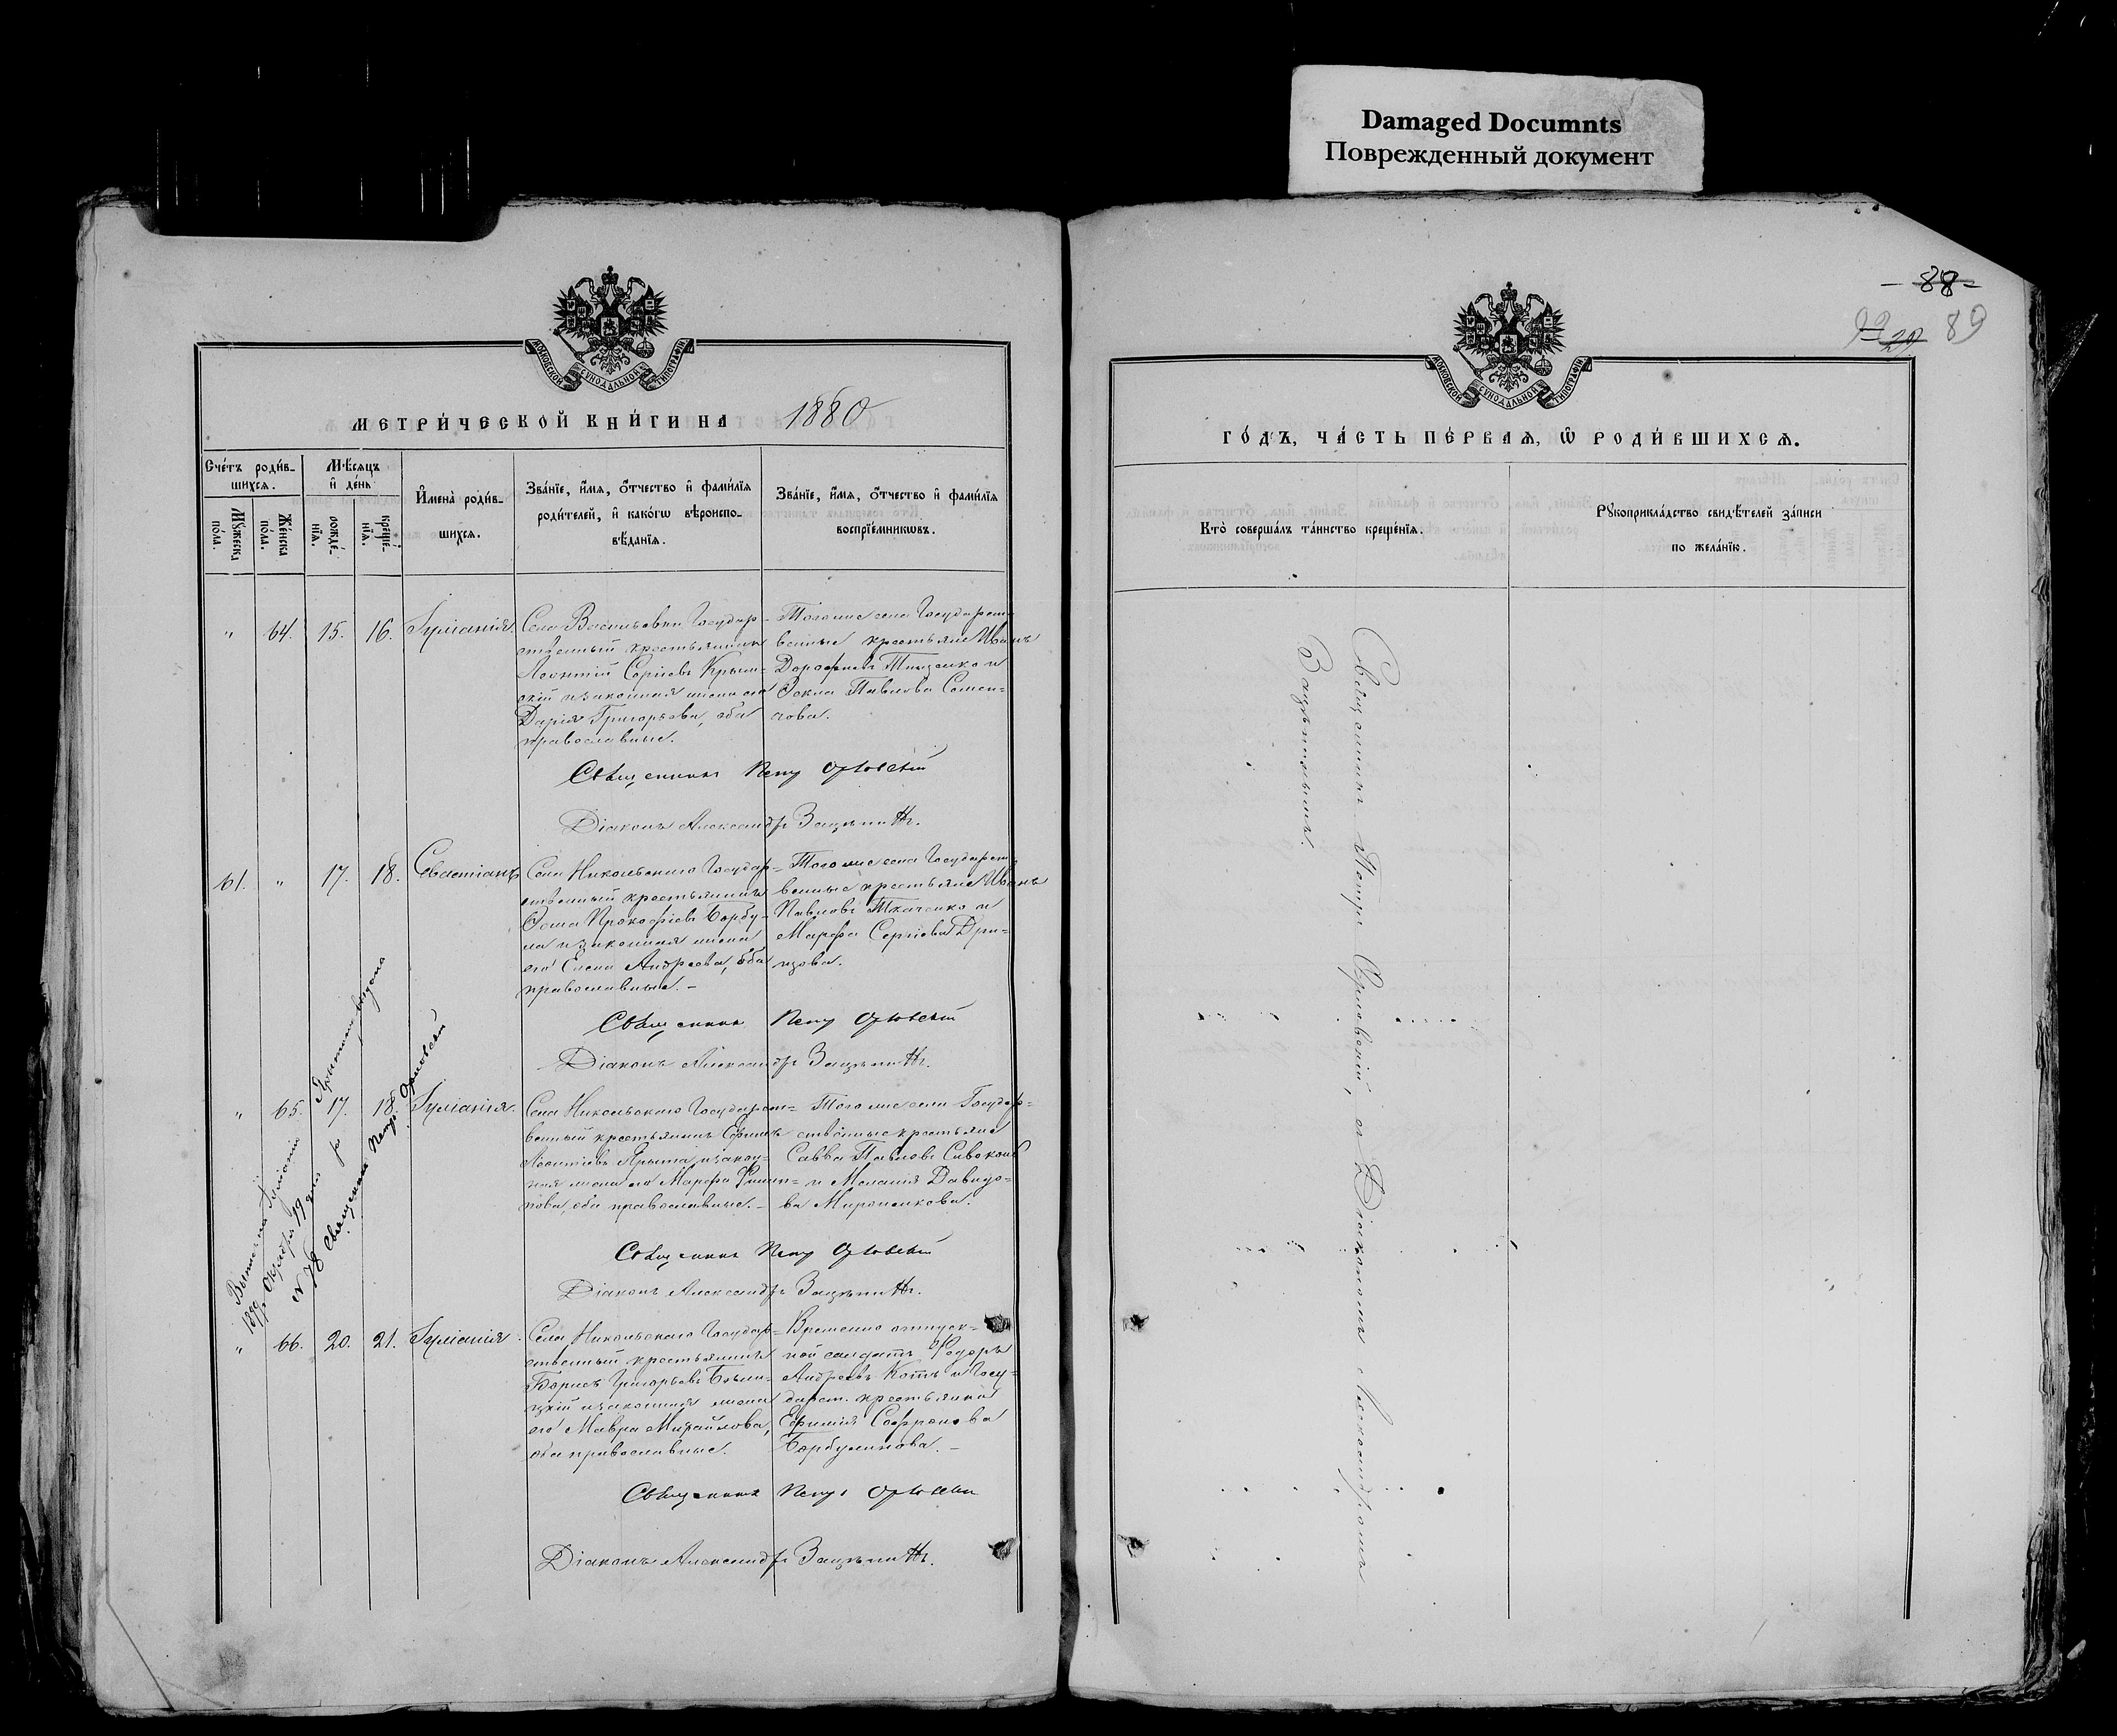 Damaged Documnts
Поврежденный документ
88
29 89
МОСКОВСКОЙ СѴНОДАЛЬНОЙ ТИПОГРАФІИ
МЕТРИ́ЧЕСКОЙ КНИ́ГИ НА 1880
Сче́тъ роди́в-
шихсѧ.
Мꙋ́жеска
по́ла.
Же́нска
по́ла.
Мѣ́сѧцъ
и҆ де́нь
рожде́-
нїѧ.
креще́-
нїѧ.
И҆мена̀ роди́в-
шихсѧ.
Зва́нїе, и҆́мѧ, ѻ҆́тчество и҆ фами́лїѧ
роди́телей, и҆ како́гѡ вѣроиспо-
вѣ́данїѧ.
Зва́нїе, и҆́мѧ, ѻ҆́тчество и҆ фами́лїѧ
воспрїе́мникѡвъ.
" 64. 15. 16. Іуліанія.
Села Васильевки Государ-
ственный крестьянинъ
Леонтій Сергіевъ Крым-
скій и законная жена его
Дарія Григорьева, оба
православные.
Того же села Государст-
венные крестьяне Иванъ
Дорофеевъ Тищенко и
Ѳекла Павлова Семен-
цова.
Священникъ Петръ Орловскій
Діаконъ Александръ
61. " 17. 18. Севастіанъ
Села Никольскаго Государ-
ственный крестьянинъ
Ѳома Прокофіевъ Барбу-
ла и законная жена
его Елена Андреева, оба
православные.-
Того же села Государст-
венные крестьяне Иванъ
Павловъ Ткаченко и
Марфа Сергіева
Священникъ Петръ Орловскій
Діаконъ Александръ
" 65. 17. 18. Іуліанія.
Села Никольскаго Государст-
венный крестьянинъ Ефимъ
Леонтіевъ Ярыта и закон-
ная жена его Марфа Филип-
пова, оба православные.-
Того же села Государ-
ственные крестьяне
Савва Павловъ Сивоконь
и Меланія Давидо-
ва Мироненкова.
Священникъ Петръ Орловскій
Діаконъ Александръ
Іуліаніи Ярыта выдана
Октября 19 дня
№ 78 Священникъ Петръ Орловскій
" 66. 20. 21. Іуліанія.
Села Никольскаго Государ-
ственный крестьянинъ
Борисъ Григорьевъ
и законная жена
его Мавра Михайлова,
оба православные.
Временно отпуск-
ной солдатъ Ѳедоръ
Андреевъ Котъ и Госу-
дарст. крестьянка
Ефимія Софронова
Барбулинова.-
Священникъ Петръ Орловскій
Діаконъ Александръ
МОСКОВСКОЙ СѴНОДАЛЬНОЙ ТИПОГРАФІИ
ГО́ДЪ, ЧА́СТЬ ПЕ́РВАѦ, Ѽ РОДИ́ВШИХСѦ.
Кто̀ соверша́лъ та́инство креще́нїѧ.
Рꙋкоприкла́дство свидѣ́телей за́писи
по жела́нїю.
Священникъ Петръ Орловскій, съ Діакономъ Александромъ